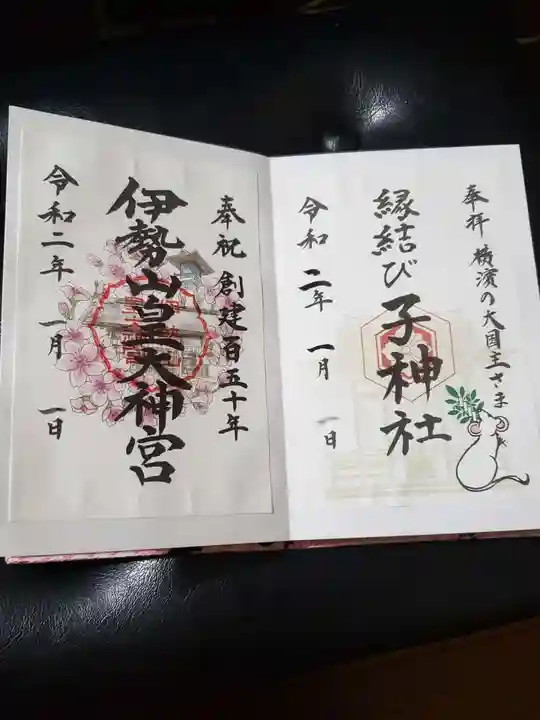 奉拝 横濱の大国主さま
縁結び子神社
令和二年 一月 一日
奉祝 創建百五十年
伊勢山皇大神宮
令和二年 一月 一日